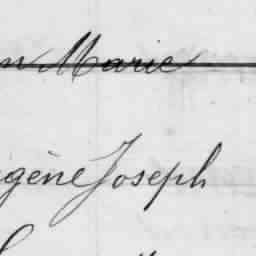 n Marie
gène Joseph